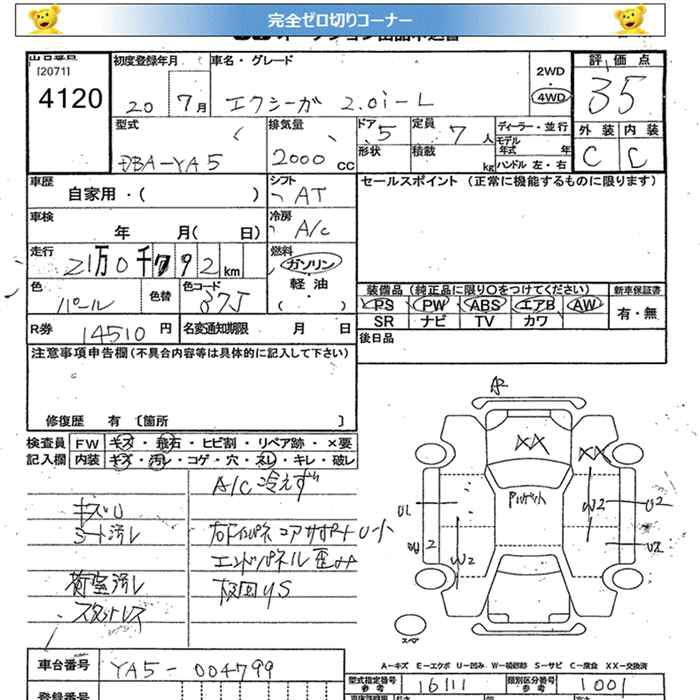 完全ゼロ切りコーナー
出品番号
[2071]
4120
初度登録年月
20 7月
車名・グレード
エクシーガ 2.0i-L
2WD
・
4WD
評価点
3.5
外装 内装
C C
型式
DBA-YA5
排気量
2000 cc
ドア 5
形状
定員 7 人
積載 kg
ディーラー・並行
モデル年式 年
ハンドル 左・右
車歴
自家用・( )
シフト
AT
セールスポイント (正常に機能するものに限ります)
車検
年 月( 日)
冷房
A/C
走行
21万0千792km
燃料
ガソリン
軽油
( )
色
パール
色替
色コード
37J
装備品 (純正品に限り○をつけてください)
新車保証書
PS PW ABS エアB AW
SR ナビ TV カワ
有・無
R券 14510円
名変通知期限 月 日
後日品
注意事項申告欄(不具合内容等は具体的に記入して下さい)
修復歴 有 [箇所 ]
検査員 FW キズ・飛石・ヒビ割・リペア跡・×要
記入欄 内装 キズ・汚レ・コゲ・穴・スレ・キレ・破レ
A/C冷えず
キズU
シート汚レ
右リヤパネコアサポートU小
エンドパネル歪み
荷室汚レ
板回りS
スタットレス
A2
XX
XX
U1
W2
U2
W2
U2
スペア
A-キズ E-エクボ U-凹み W-補修跡 S-サビ C-腐食 XX-交換済
車台番号
YA5-004799
型式指定番号
参考
16111
類別区分番号
参考
1001
登録番号